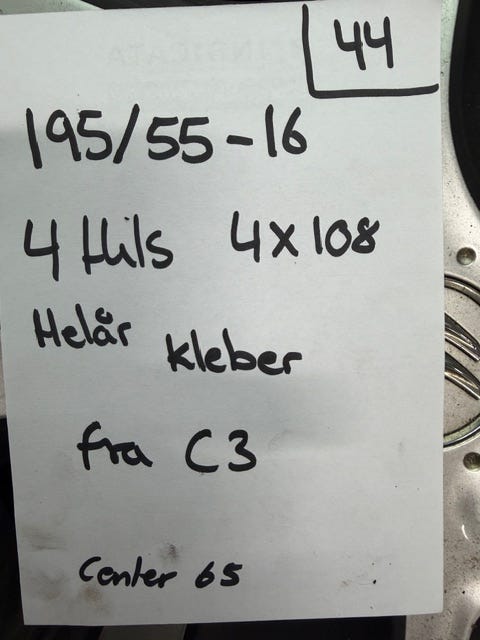 44
195/55-16
4 Huls 4x108
Helår kleber
fra C3
Center 65